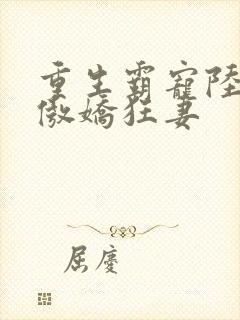 重生霸寵陸
傲嬌狂妻
屈慶